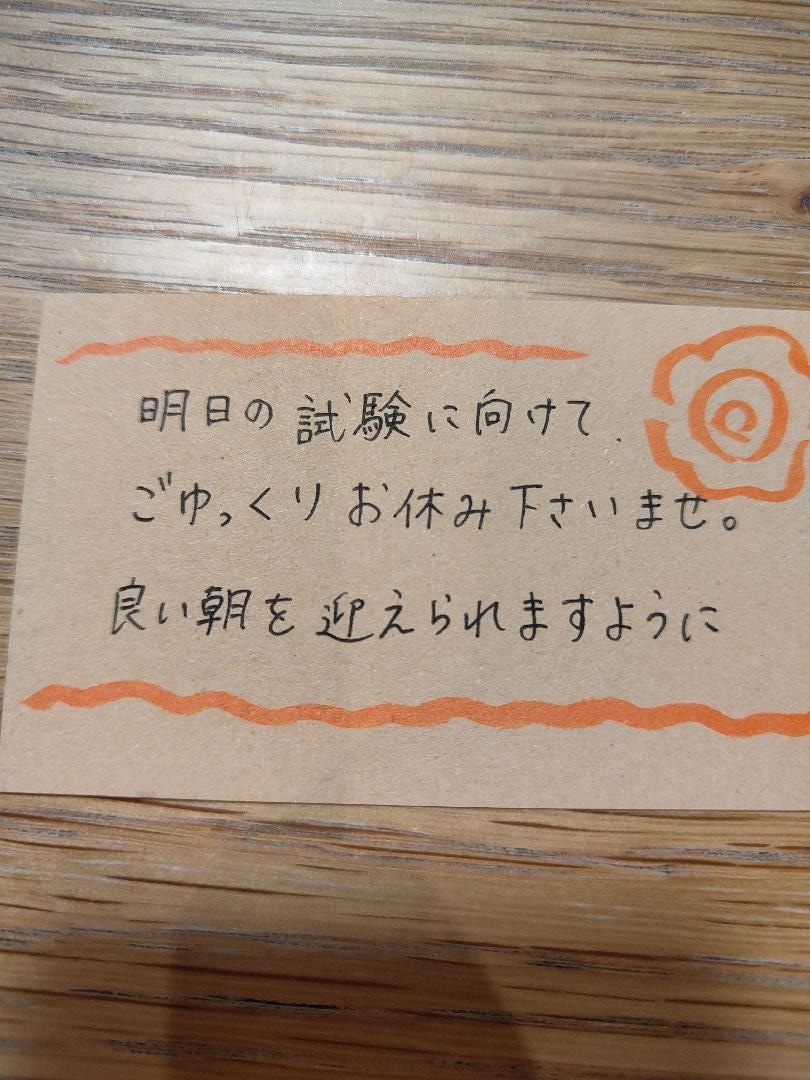 明日の試験に向けて、
ごゆっくりお休み下さいませ。
良い朝を迎えられますように